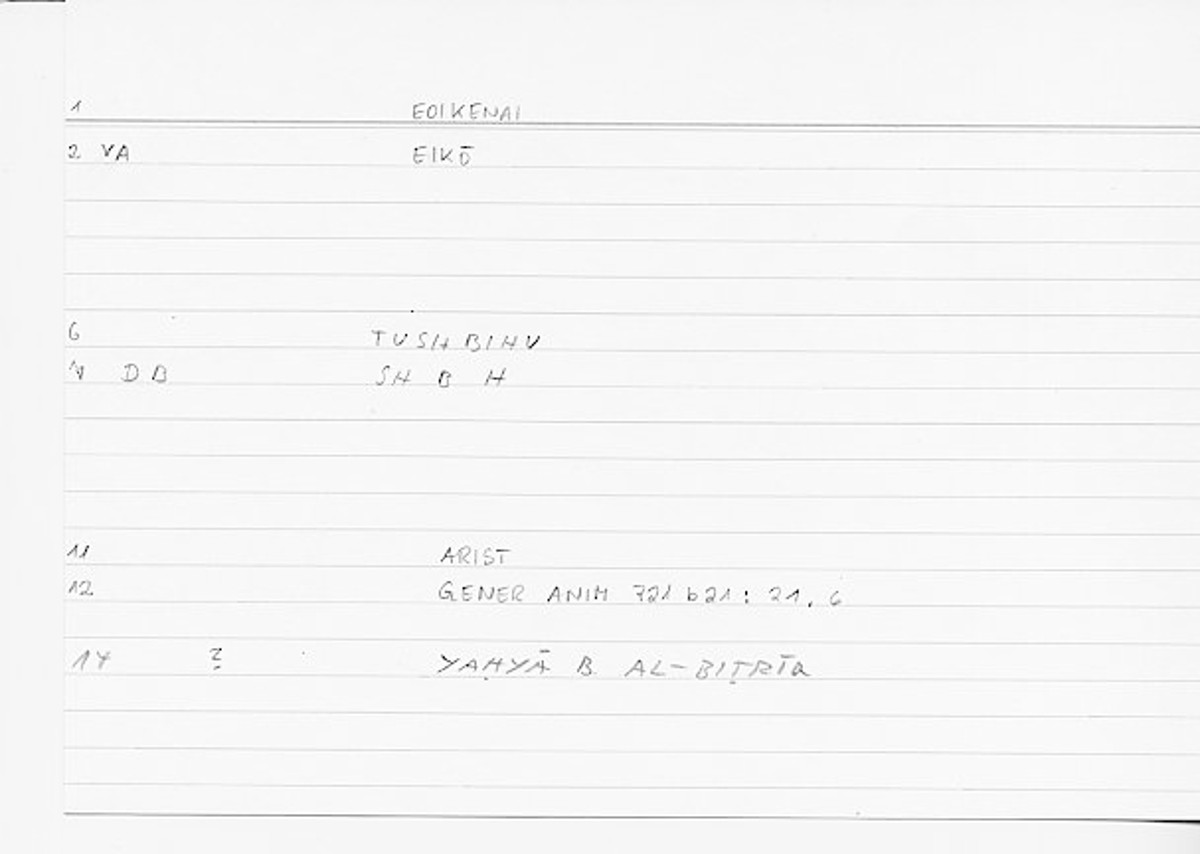 1 EOIKENAI
2 VA EIKŌ
6 TUSHBIHU
DB SH B H
11 ARIST
12 GENER ANIM 721 b21: 21, 6
14 ? YAḤYĀ B. AL-BIṬRĪQ